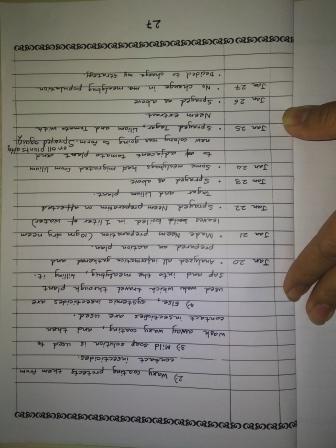 2) Waxy coating protects them from
contact insecticides.
3) Mild soap solution is used to
wash away waxy coating, and then
contact insecticides are used.
4) Else, systemic insecticides are
used which travel through plant
sap and into the mealybug killing it.
Jan 20 • Analyzed all information gathered and
prepared an action plan.
Jan 21 • Made Neem preparation (5gm dry neem
leaves boiled in 1 liter of water)
Jan 22 • Sprayed Neem preparation on affected
Tagar and Lilium plant.
Jan 23 • Sprayed as above
Jan 24 • Some mealybugs had migrated from Lilium
to adjacent Tomato plant and
new colony was going to form. Sprayed again
on all plants
Jan 25 • Sprayed Tagar, Lilium and Tomato with
Neem extract
Jan 26 • Sprayed as above
Jan 27 • No change in mealybug population
• Decided to change my strategy.
27